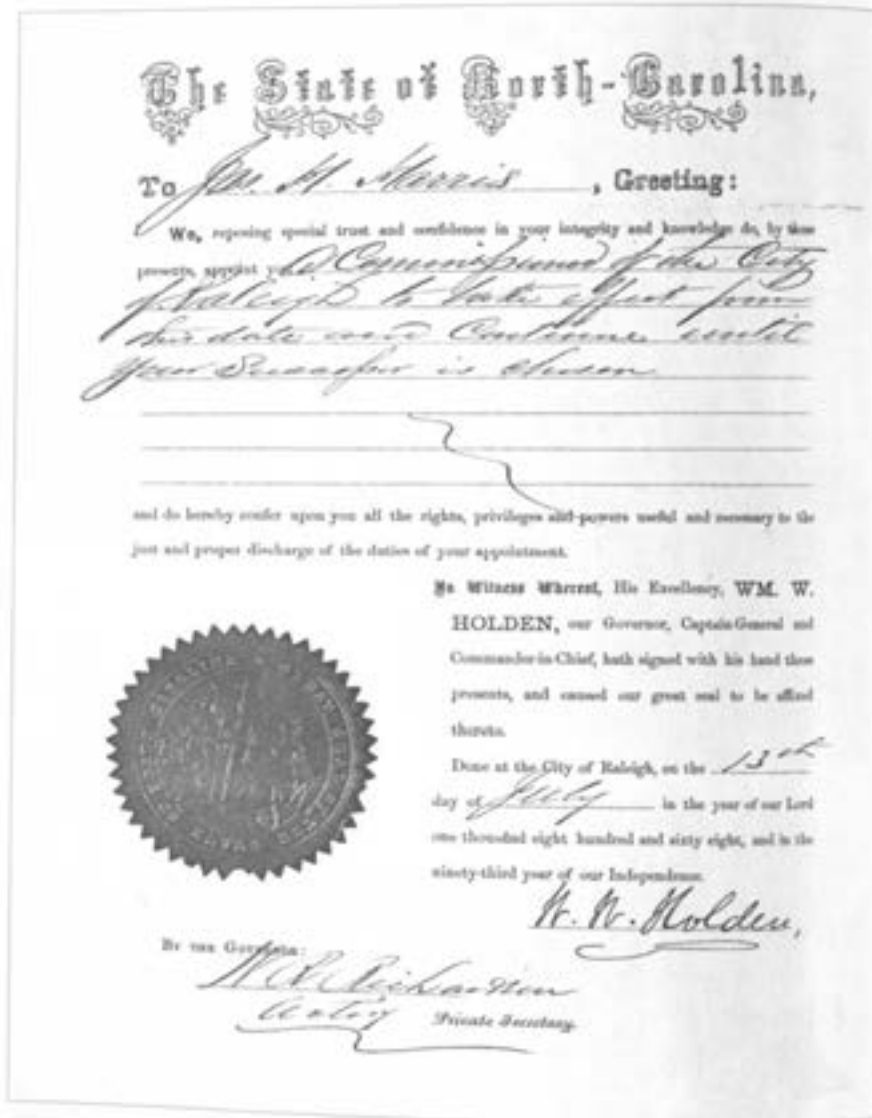 The State of North-Carolina,
To Jno. H. Morris, Greeting:
We, reposing special trust and confidence in your integrity and knowledge do, by these
presents, appoint you A Commissioner of the City
of Raleigh to take effect from
this date and Continue until
your Successor is chosen
and do hereby confer upon you all the rights, privileges and powers useful and necessary to the
just and proper discharge of the duties of your appointment.
In Witness Whereof, His Excellency, WM. W.
HOLDEN, our Governor, Captain-General and
Commander-in-Chief, hath signed with his hand these
presents, and caused our great seal to be affixed
thereto.
Done at the City of Raleigh, on the 13th
day of July in the year of our Lord
one thousand eight hundred and sixty eight, and in the
ninety-third year of our Independence.
W. W. Holden,
BY THE GOVERNOR:
Richardson
Private Secretary.